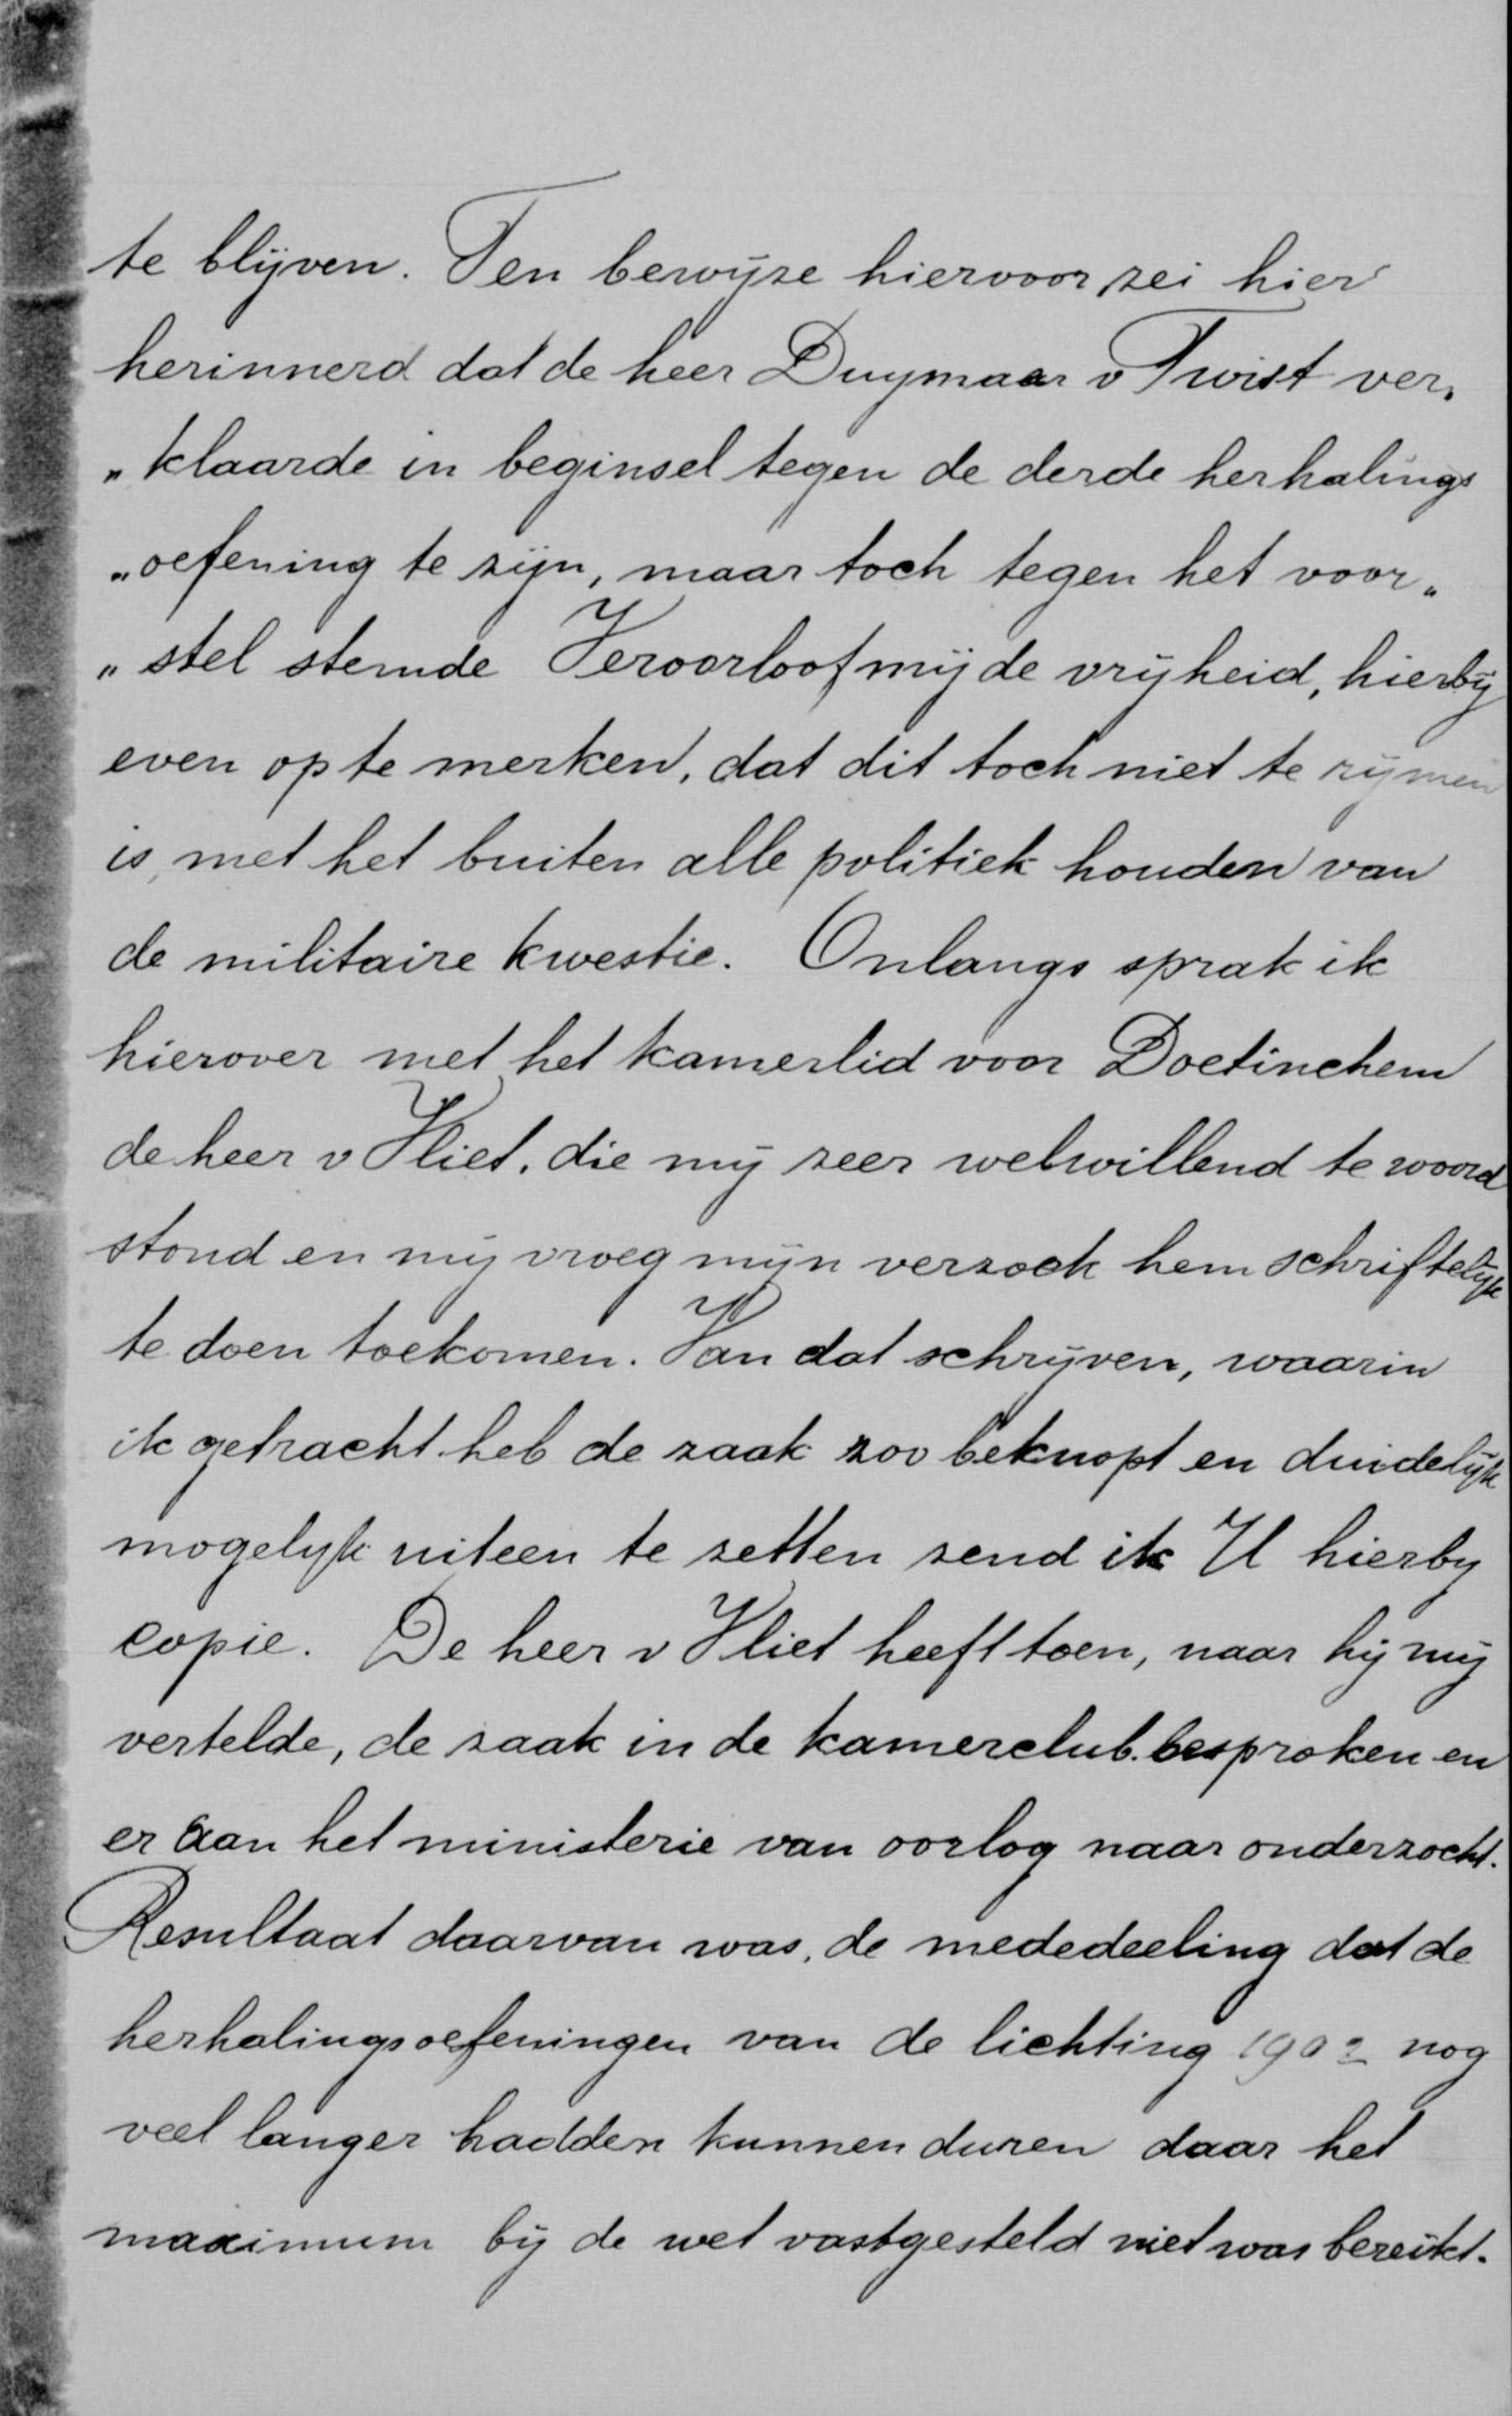 te blijven. Ten bewijze hiervoor zei hier
herinnerd dat de heer Duymaer v Twist ver„
„klaarde in beginsel tegen de derde herhalings
„oefening te zijn, maar toch tegen het voor„
„stel stemde Veroorloof mij de vrijheid, hierbij
even op te merken, dat dit toch niet te rijmen
is, met het buiten alle politiek houden van
de militaire kwestie. Onlangs sprak ik
hierover met het kamerlid voor Doetinchem
de heer v Vliet, die mij zeer welwillend te woord
stond en mij vroeg mijn verzoek hem schriftelijk
te doen toekomen. Van dat schrijven, waarin
ik getracht heb de zaak zoo beknopt en duidelijk
mogelijk uiteen te zetten zend ik U hierby
copie. De heer v Vliet heeft toen, naar hij mij
vertelde, de zaak in de kamerclub besproken en
er aan het ministerie van oorlog naar onderzocht.
Resultaat daarvan was, de mededeeling dat de
herhalingsoefeningen van de lichting 1902 nog
veel langer hadden kunnen duren daar het
maximum bij de wet vastgesteld niet was bereikt.